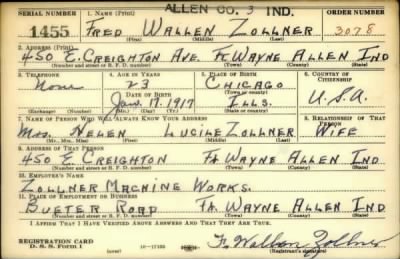 ALLEN CO. 3 IND.
SERIAL NUMBER 1. NAME (Print) ORDER NUMBER
1455 FRED WALLEN ZOLLNER 3078
(First) (Middle) (Last)
2. ADDRESS (Print)
450 E. CREIGHTON AVE. FT. WAYNE ALLEN IND
(Number and street or R. F. D. number) (Town) (County) (State)
3. TELEPHONE 4. AGE IN YEARS 5. PLACE OF BIRTH 6. COUNTRY OF CITIZENSHIP
None 23 CHICAGO
DATE OF BIRTH (Town or county)
JAN. 17. 1917 ILLS. U.S.A.
(Exchange) (Number) (Mo.) (Day) (Yr.) (State or country)
7. NAME OF PERSON WHO WILL ALWAYS KNOW YOUR ADDRESS 8. RELATIONSHIP OF THAT PERSON
MRS. HELEN LUCILE ZOLLNER WIFE
(Mr., Mrs., Miss) (First) (Middle) (Last)
9. ADDRESS OF THAT PERSON
450 E CREIGHTON FT. WAYNE ALLEN IND
(Number and street or R. F. D. number) (Town) (County) (State)
10. EMPLOYER'S NAME
ZOLLNER MACHINE WORKS.
11. PLACE OF EMPLOYMENT OR BUSINESS
BUETER ROAD FT. WAYNE ALLEN IND
(Number and street or R. F. D. number) (Town) (County) (State)
I AFFIRM THAT I HAVE VERIFIED ABOVE ANSWERS AND THAT THEY ARE TRUE.
REGISTRATION CARD
D. S. S. Form 1 16—17105 F. Wallen Zollner
(Registrant's signature)